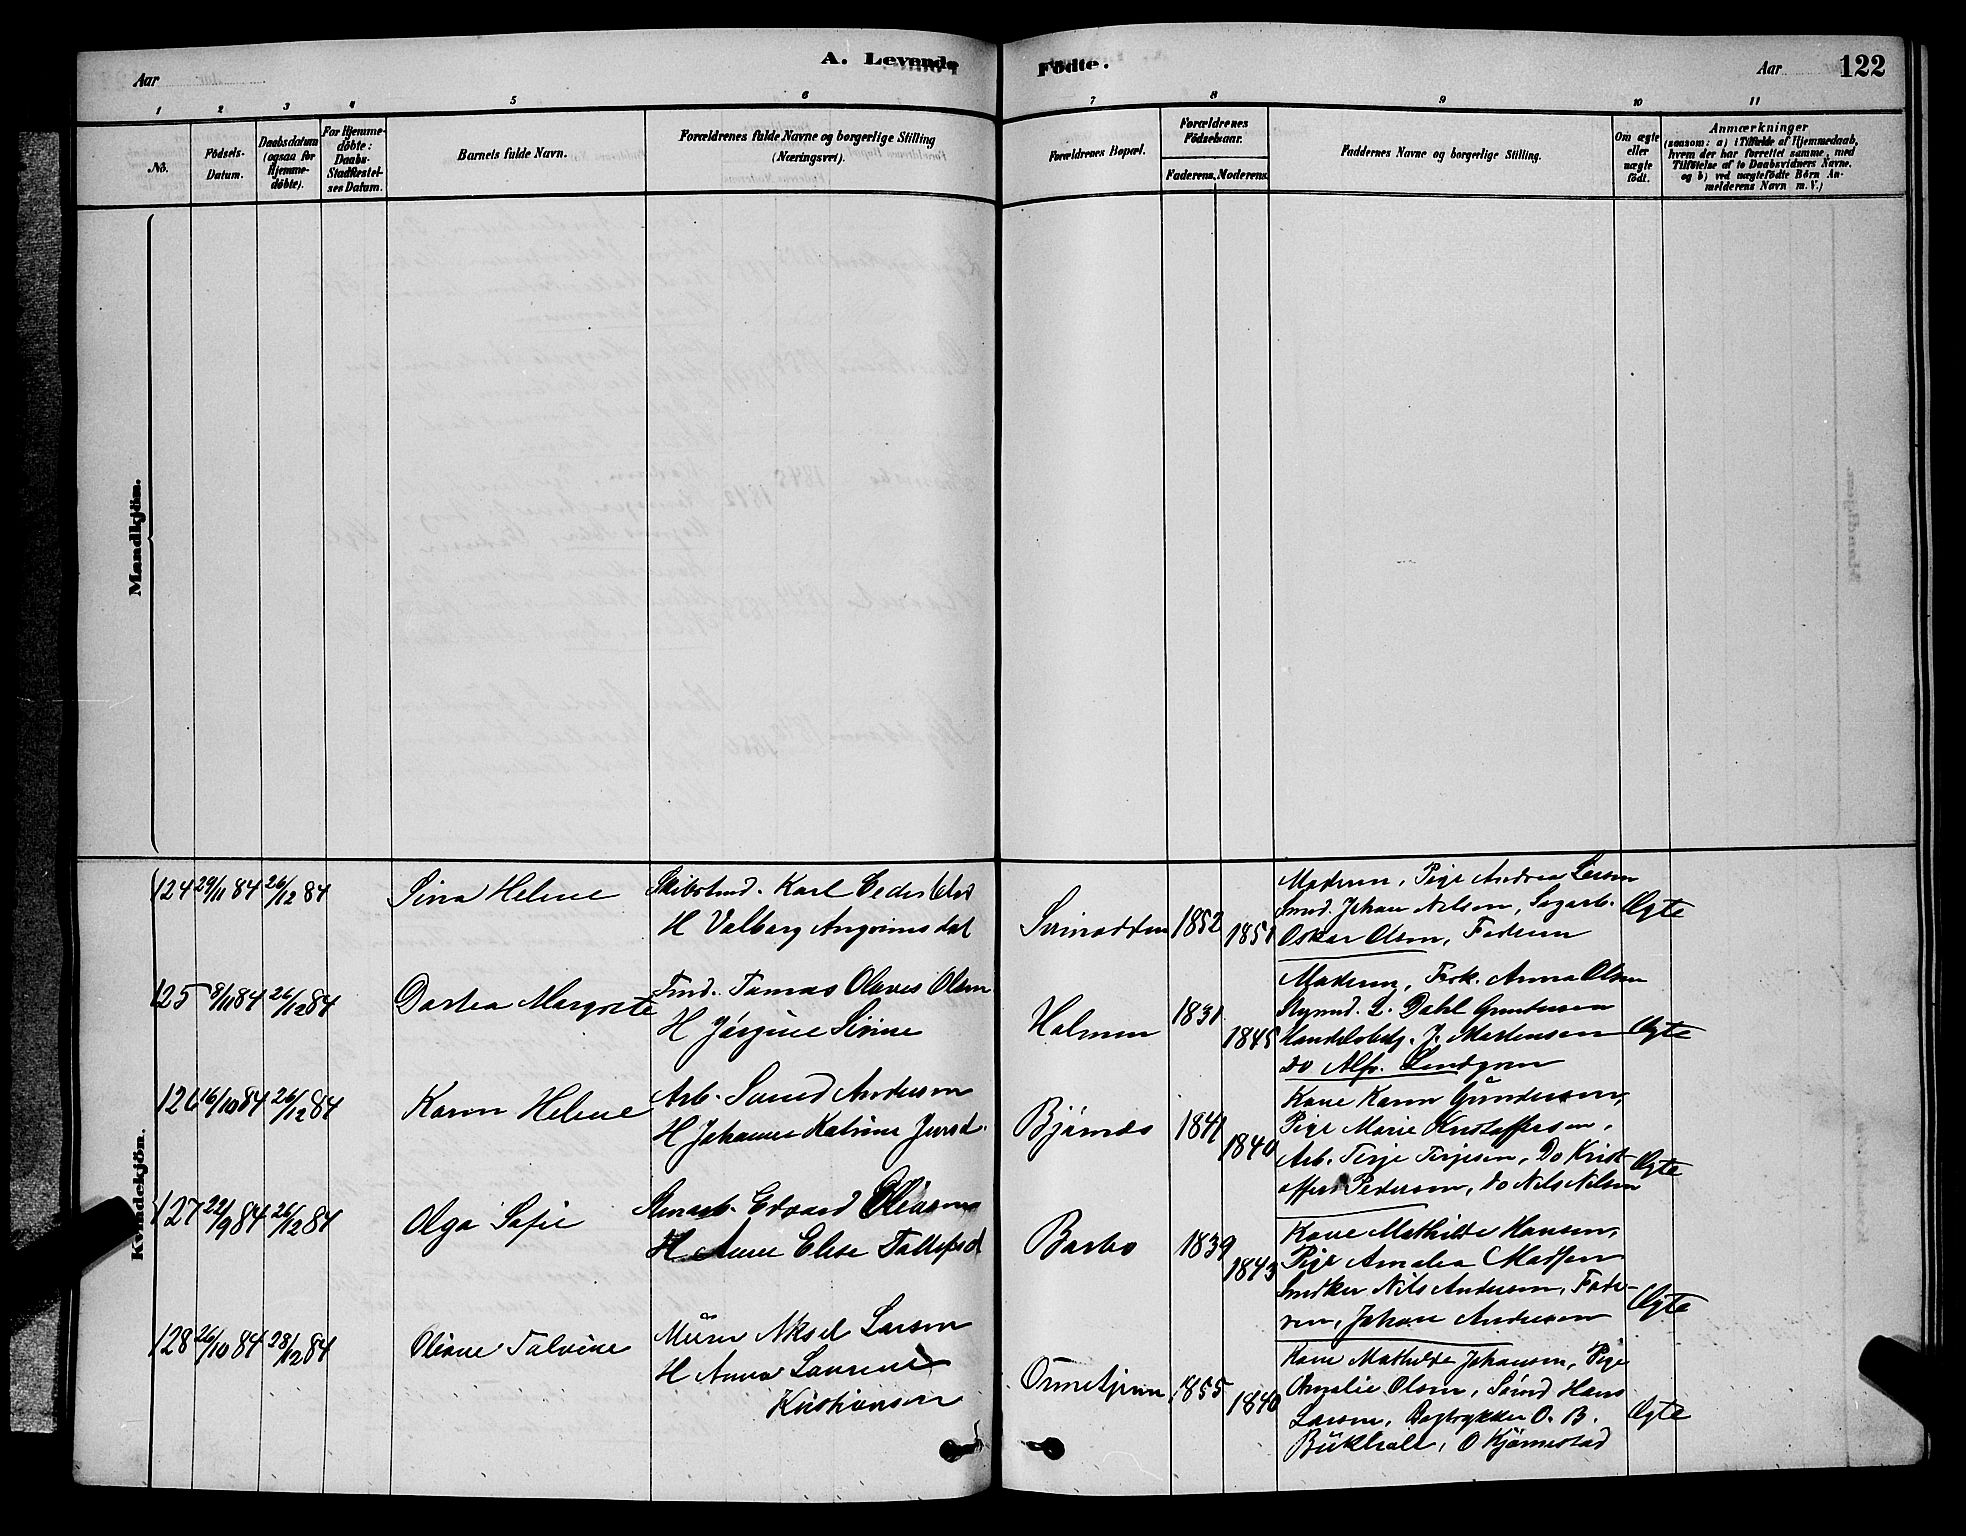 Aar
A. Levende
Födte.
Aar
122
1 2 3 4 5 6 7 8 9 10 11
No.
Födsels-Datum.
Daabsdatum (ogsaa for Hjemme-döbte).
For Hjemme-döbte: Daabs-Stadfæstel-ses Datum.
Barnets fulde Navn.
Forældrenes fulde Navne og borgerlige Stilling (Næringsvei).
Forældrenes Bopæl.
Forældrenes Födselsaar.
Faderens. Moderens.
Faddernes Navne og borgerlige Stilling.
Om ægte eller uægte födt.
Anmærkninger
(saasom: a) i Tilfælde af Hjemmedaab,
hvem der har forrettet samme, med
Tilföielse af to Daabsvidners Navne.
og b) ved uægtefödte Börn An-
melderens Navn m. V.)
Mandkjön.
Kvindekjön.
124 29/11 84 26/12 84 Sina Helene
Karl Peder
H Valborg
1852 1851
Moderen, Pige Andrea
Johan Nilsen,
Oskar Olsen, Faderen
Ægte
125 8/11 84 26/12 84 Dortea Margrete
Tomas Olaves Olsen
H Jörgine Sirine
Holmen 1831 1845
Moderen, Frk. Anna Olsen
L. Dahl Gundersen
J. Mortensen
do Alfr. Lindgren
Ægte
126 16/10 84 26/12 84 Karen Helene
Arb. Andersen
H Johanne Katrine
Bjørnæs 1841 1840
Kone Karen Gundersen,
Pige Marie Kristoffersen,
Arb. Terje Terjesen, Do Krist-
offer Pedersen, do Nils Nilsen
Ægte
127 22/9 84 26/12 84 Olga Sofie
Edvard
H Anne Elise
Barbo 1839 1843
Kone Mathilde Hansen,
Pige Amalia Madsen
Nils Andersen, Fade-
ren, Johan Andersen
Ægte
128 26/10 84 28/12 84 Oleane Talvine
Murer Aksel Larsen
H Anna Laurene
Kristiansen
1855 1840
Kone Mathilde Johansen, Pige
Amalie Olsen, Hans
Larsen, Bogtrykker O. B.
Ægte